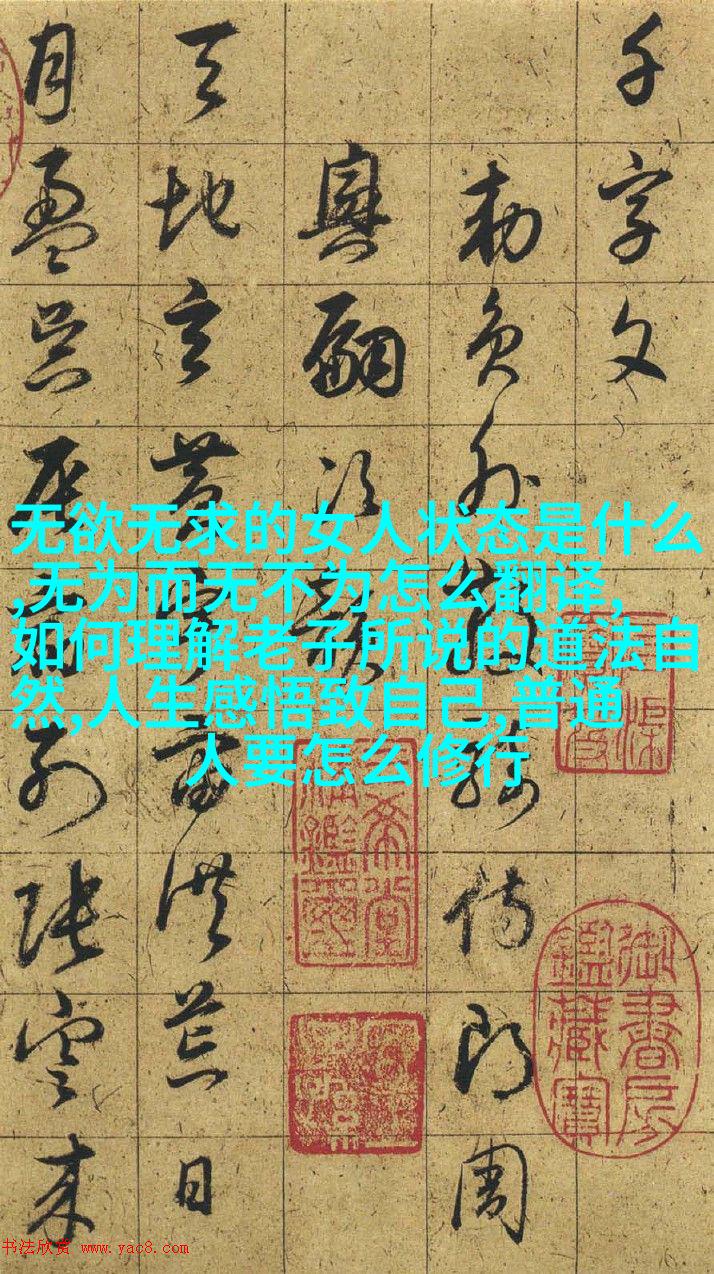 千字文
勅員外散騎侍郎周
興嗣次韻
天地玄黃宇宙洪荒日
月盈昃辰宿列張雲來
无欲无求的女人状态是什么
,无为而无不为怎么翻译,
如何理解老子所说的道法自
然,人生感悟致自己,普通
人要怎么修行
三希堂精鑑璽
宜子孫
御書房鑑藏寶
书法欣赏 www.yac8.com